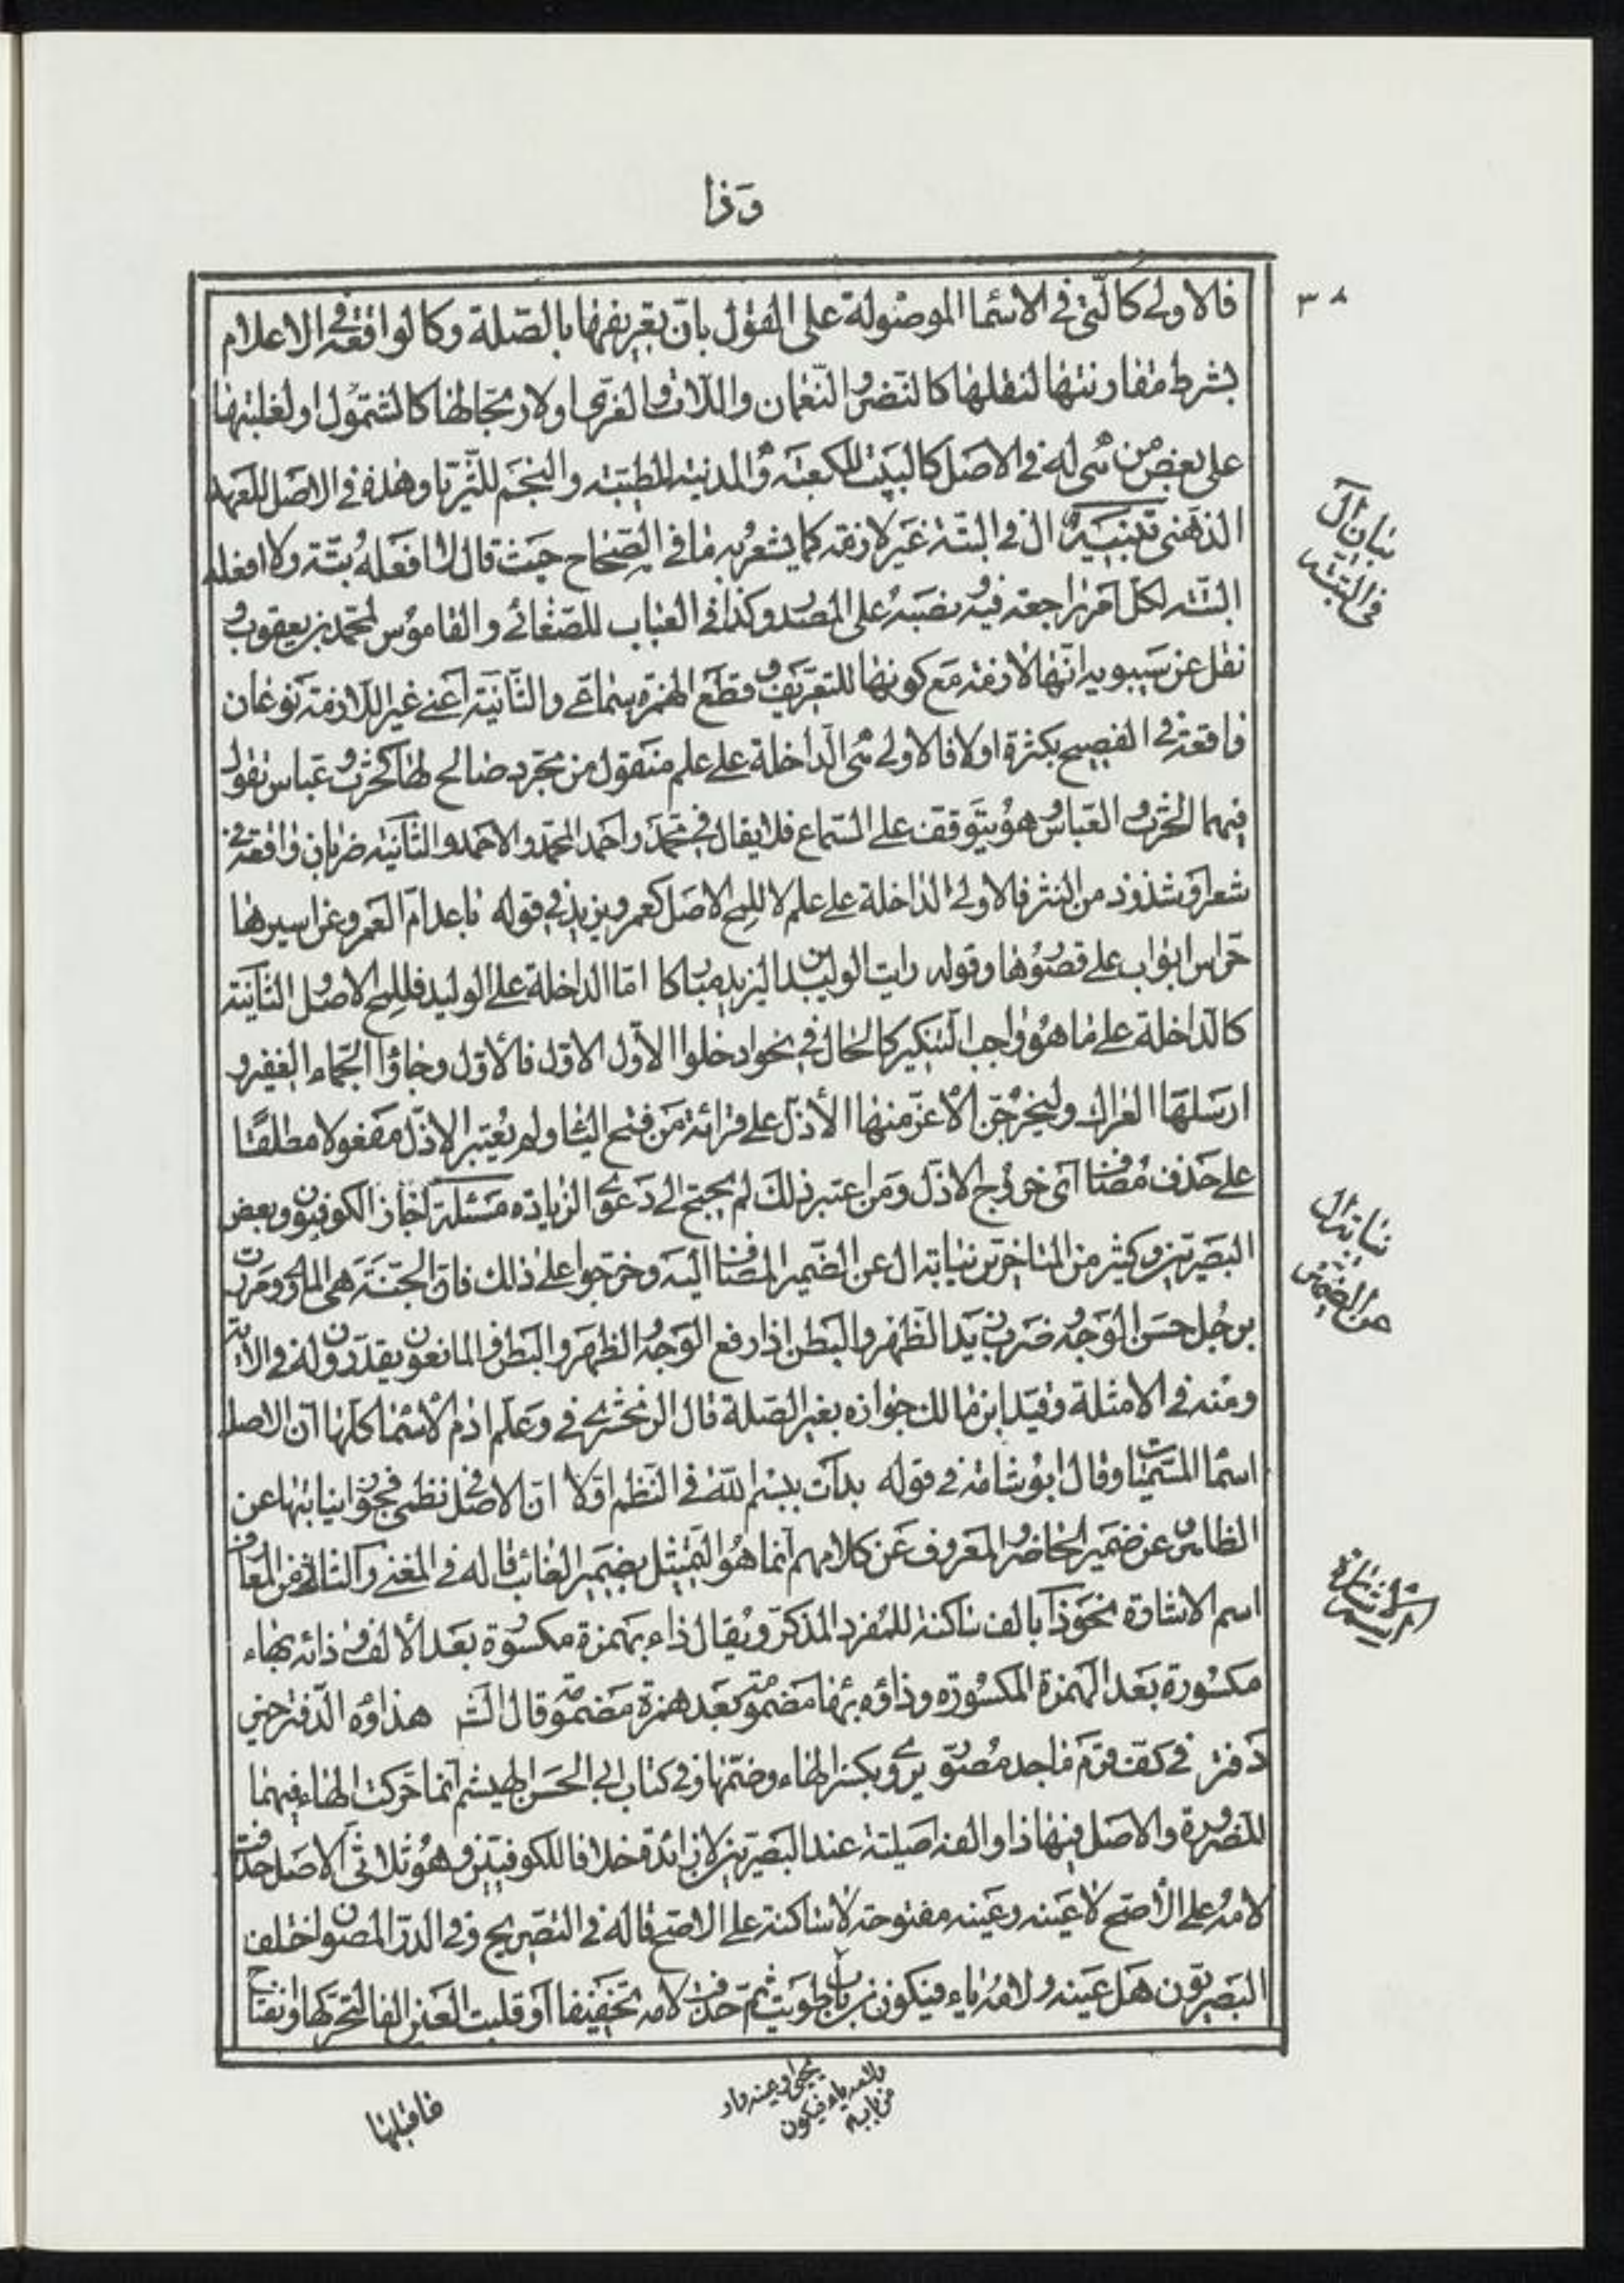 وَذا
٣٨
فالاولى كالّتى فى الاسْما الموصُولة على القول بانّ تعريفها بالصّلة وكالواقعة فى الاعلام
بشرط مقارنتها لنقلها كالنّضر والنّعمان واللّات والعُزّى او لارتجالها كالسّمَوْءل او لغلبتها
على بعض من هى له فى الاصَل كالبَيت للكعبَة والمدينة لطيبَة والنجَم للثّريّا وهذه فى الاصَل للعَهد
الذهنى تنبيه ال فى البتّة غَير لازمة كما يشعر به ما فى الصّحاح حيث قال لا افعَله بتّة ولا افعله
البتّة لكلّ امر لا رجعة فيه ونصَبهُ على المصْدر وكذا فى العباب للصّغانى والقاموس لمحمّد بن يعقوب و
نقل عن سَيبويه انّها لازمة مَع كونها للتعريف وقطع الهمزة سماعى والثّانيَة اعنى غير اللّازمة نَوعان
واقعة فى الفصيح بكثرة اولا فالاولى هى الدّاخلة على علم منقول من مجّرد صالح لها كحَرث وعَباس تقول
فيهما الحَرث والعَباس وهو يتوقف على السّماع فلا يقال فى محَمّد واحَمد المحمّد والاحَمد والثّانيَة ضربان واقعة فى
شعر او شذوذ من النثر فالاولى الدّاخلة على علم لا للمح الاصَل كعمرو ويزيد فى قوله باعدَ امّ العَمر وعن اسيرها
حرّاس ابواب على قصُورها وقوله رايت الوليد بن اليزيد مباركا امّا الداخلة على الوليد فللمح الاصل والثانيَة
كالدّاخلة على ما هو واجب التنكير كالحَال فى نحو ادخلوا الاّول الاوّل فالأوّل وجاؤا الجّماء الغفير و
ارسَلهَا العراك وليَخرجَنّ الأعَزّ منها الأذلّ على قرائة مَن فتح اليا ولم يُعتبر الاذلّ مفعولا مطلقًا
على حَذف مُضاف اى خروج الاذلّ ومَن اعتبر ذلكَ لم يحتج الى دَعوى الزيادة مسَئلة اجاز الكوفيون وبعض
البصَريّين وكثير من المتاخّرين نيابة ال عن الضّمير المضاف اليَه وخرّجوا على ذلك فانّ الجنّة هى الماوى ومررت
برجُل حسَن الوَجه وضرب زيد الظّهر والبطن اذا رفع الوَجه والظهر والبَطن والمانعون يقدّرون له فى الآية
ومنه فى الامثلة وقيّد ابن مالك جوازه بغير الصّلة قال الزمخشرى فى وَعلّم ادم الاسْما كلّها انّ الاصل
اسْما المسّميات وقال ابو شامة فى قوله بدَأت ببسْم اللّه فى النّظم اوّلا انّ الاصل فى نظمى فجوّزا نيابتها عن
الظاهر وعن ضمير الحاضر والمعروف عَن كلامهم انّما هُو التمثيل بضمير الغائب قاله فى المغنى والثانى من المعارف
اسم الاشارة نحو ذا بالف ساكنة للمُفرد المذكّر ويُقال ذاء بهمزة مكسُورة بعَد الالف وذائه بهاء
مكسُورة بعَد الهمزة المكسُورة وذاؤه بهاء مضمومة بعَد همزة مَضمومة قال الشـ هذاؤه الدّفتر خير
دَفتر فى كفّ قرم ماجد مصُوّر يروى بكسر الهاء وضمّها وفى كتاب ابى الحسَن الهيثم انّما حّركت الهاء فيهما
للضرورة والاصَل فيها ذا والفه اصيلة عند البَصريين لا زائدة خلافا للكوفيّين وهو ثلاثى الاصَل حذفت
لامهُ على الأصّح لا عَينه وعَينه مفتوحة لا ساكنة على الاصّح قاله فى التصّريح وفى الدرّ المصون اختلف
البَصريّون هَل عَينه ولامهُ ياء فيكون من باب طويت ثمّ حذفت لامه تخَفيفا او قلبت العَين الفا لتحرّكها وانفتاح
بيَان ال
فى البتّة
نيابة ال
عن الضّمير
اسم الاشارة
يحيى او عينه واو
ولامه ياء فيكون
من باب
ما قبلها